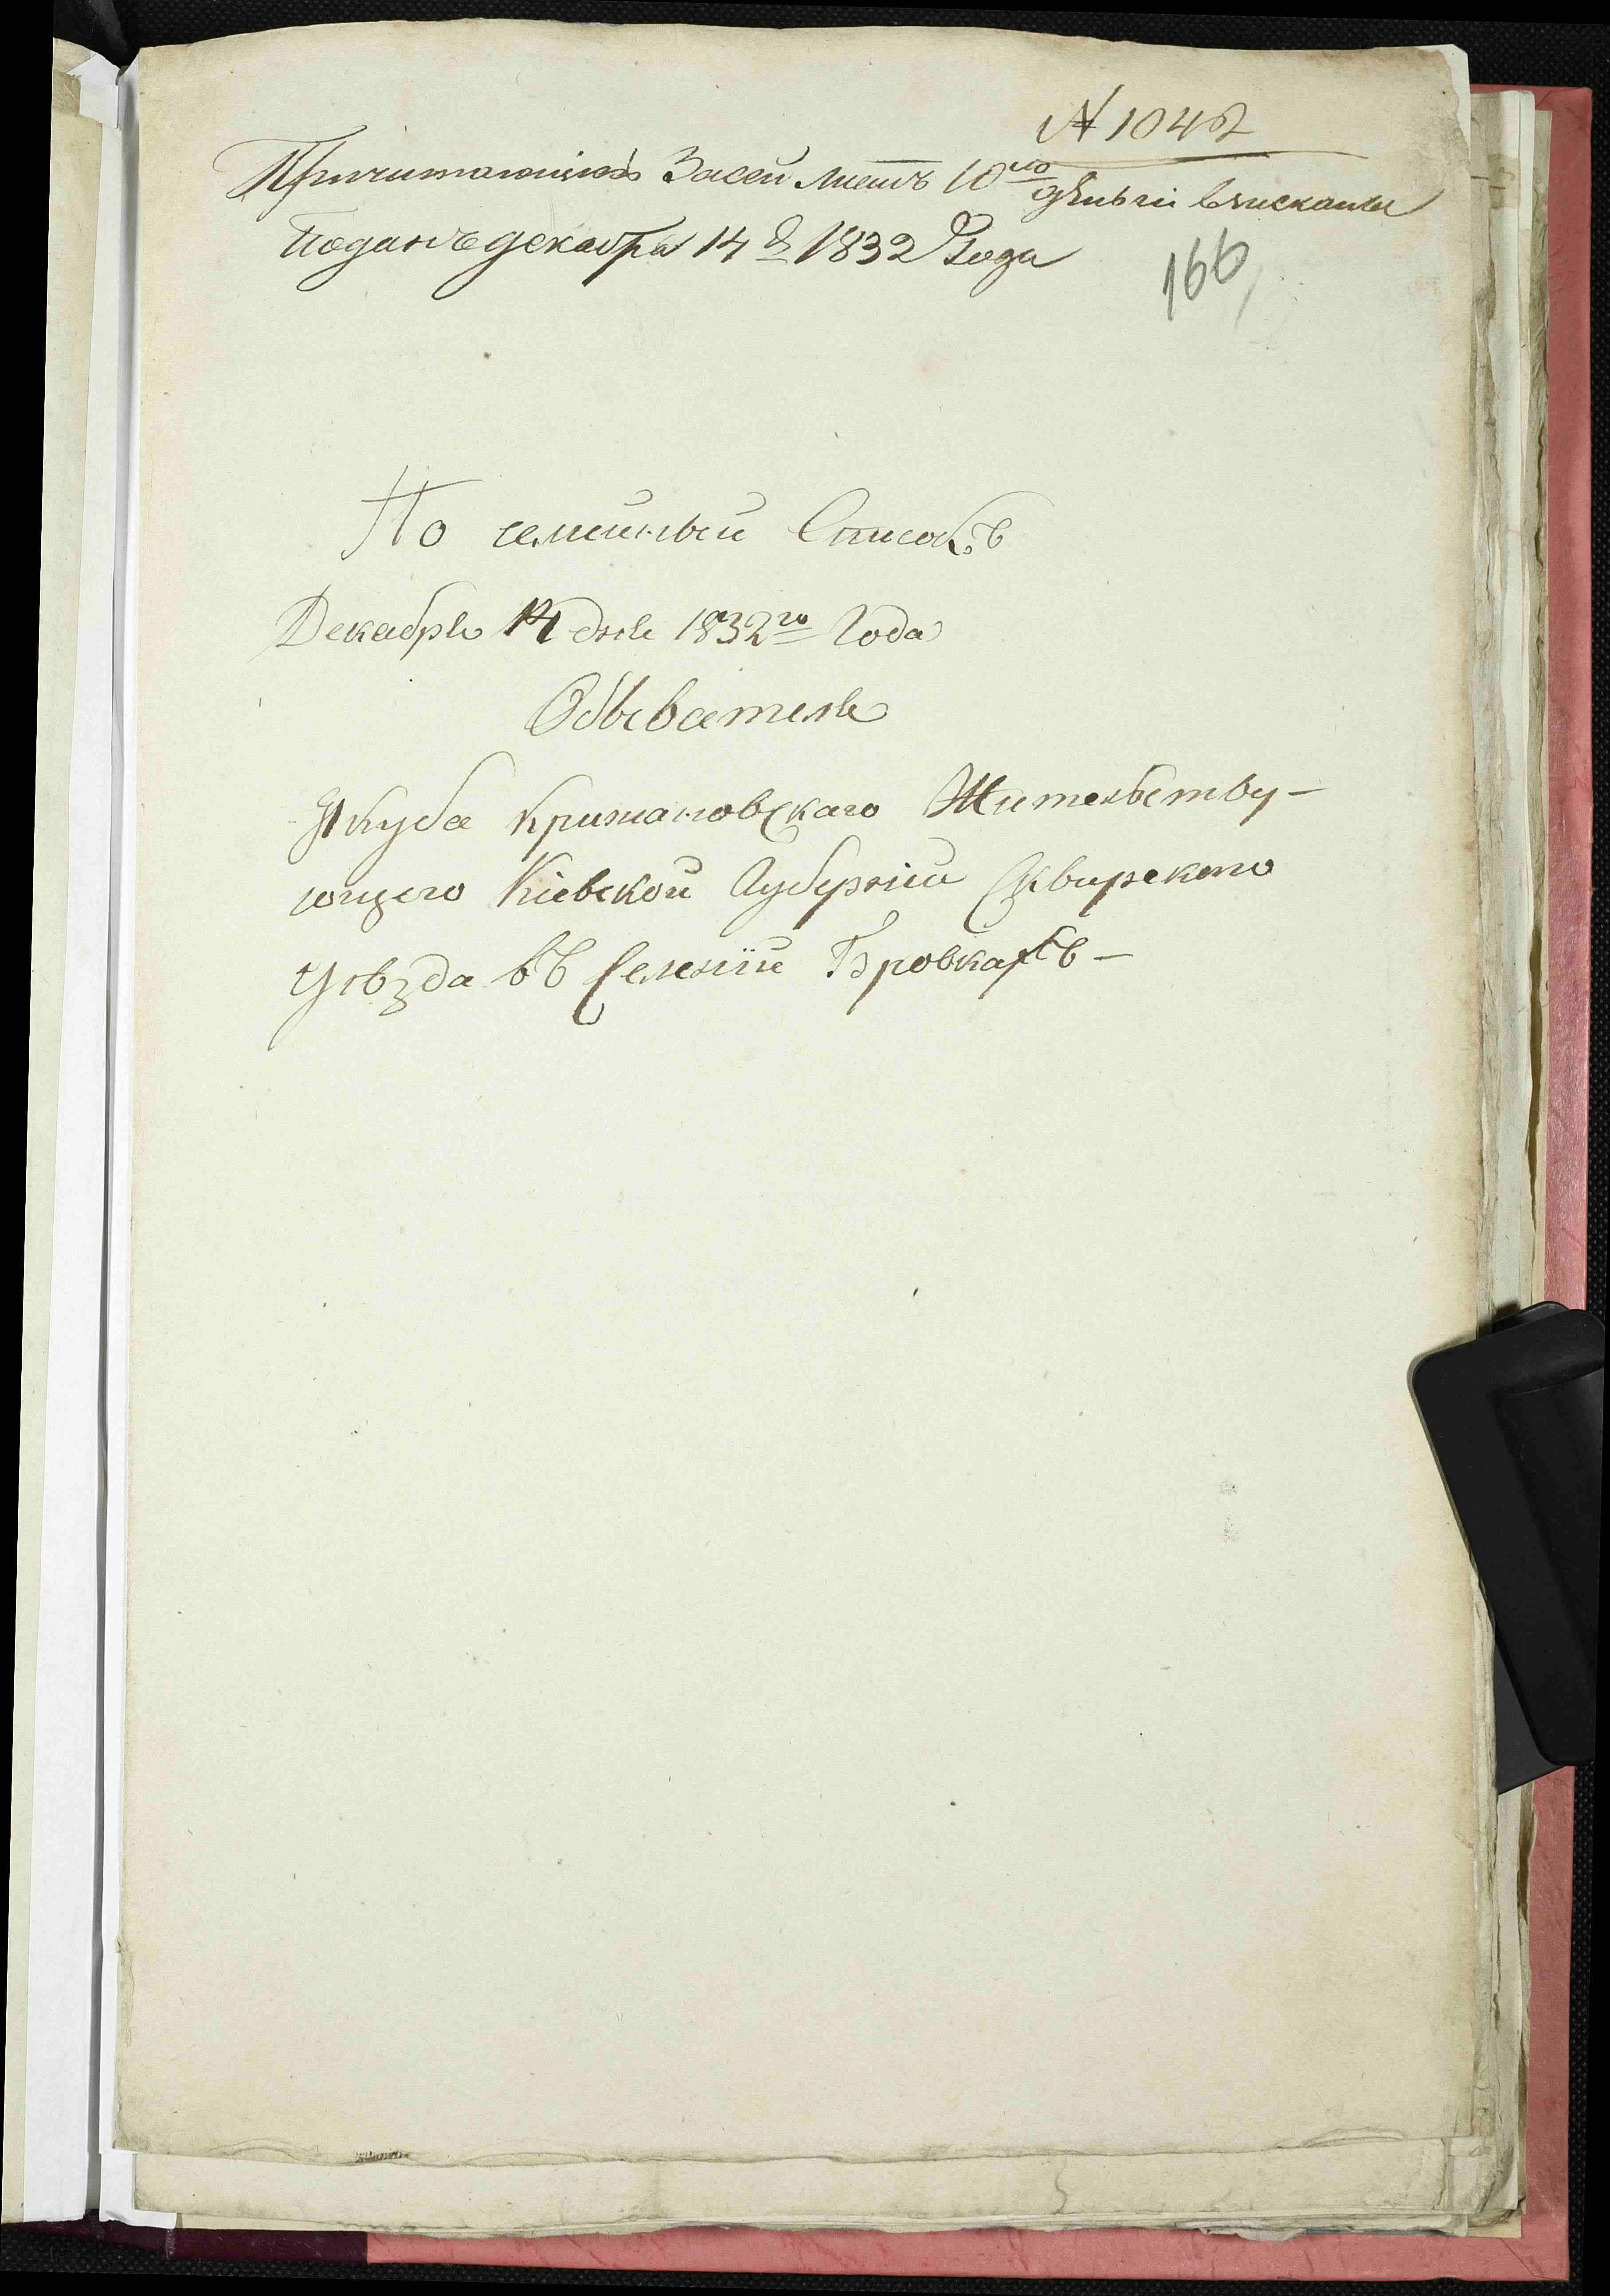 № 1042
Причитающіяся За сей листъ 10го дѣньги взисканы
Поданъ декабря 14 д 1832 Года
166
По семейный Списокъ
Декабря 14 дня 1832го Года
Обывателя
Якуба Крижановскаго Жительству-
ющего Кіевской Губерніи Сквирского
Уѣзда въ Селеніи Бровкахъ -